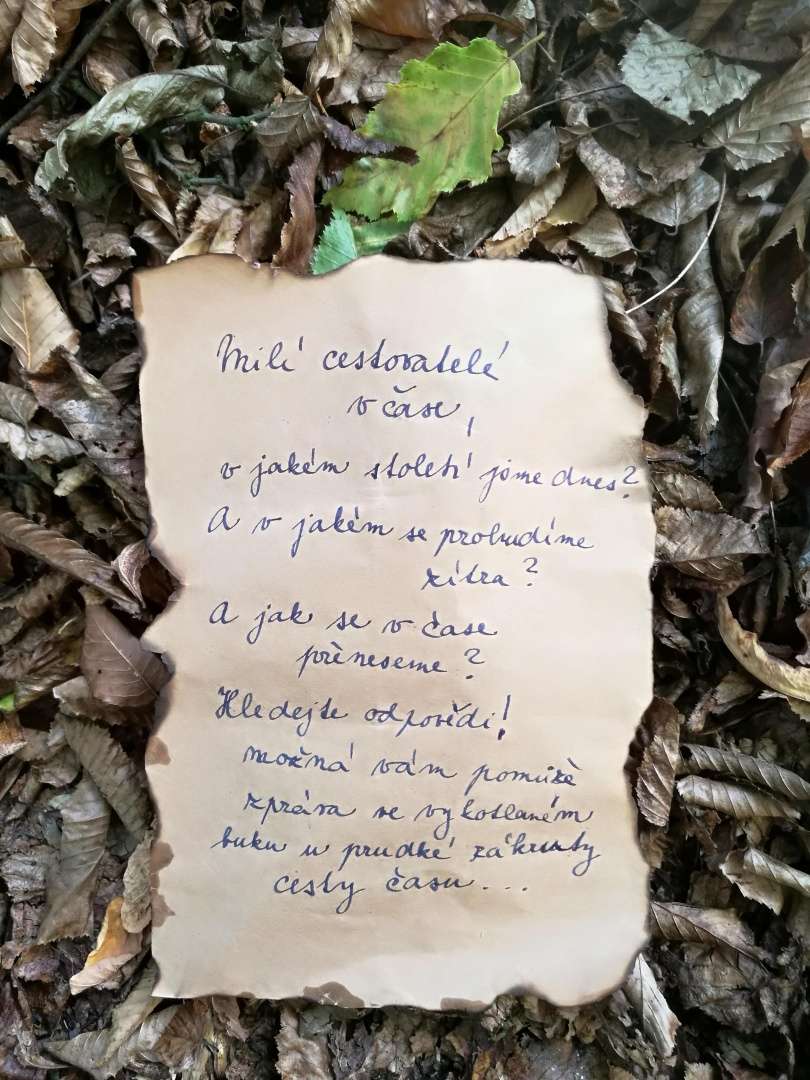 Milí cestovatelé
v čase,
v jakém století jsme dnes?
A v jakém se probudíme
zítra?
A jak se v čase
přeneseme?
Hledejte odpovědi!
možná vám pomůže
zpráva ve vykotlaném
buku u prudké zákruty
cesty času...